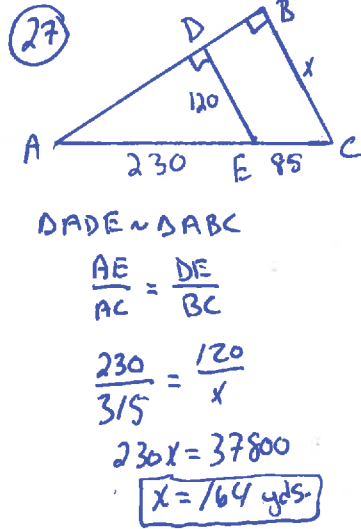 27
D
B
x
120
A
230
E
85
C
ΔADE ~ ΔABC
AE/AC = DE/BC
230/315 = 120/x
230x = 37800
x = 164 yds.